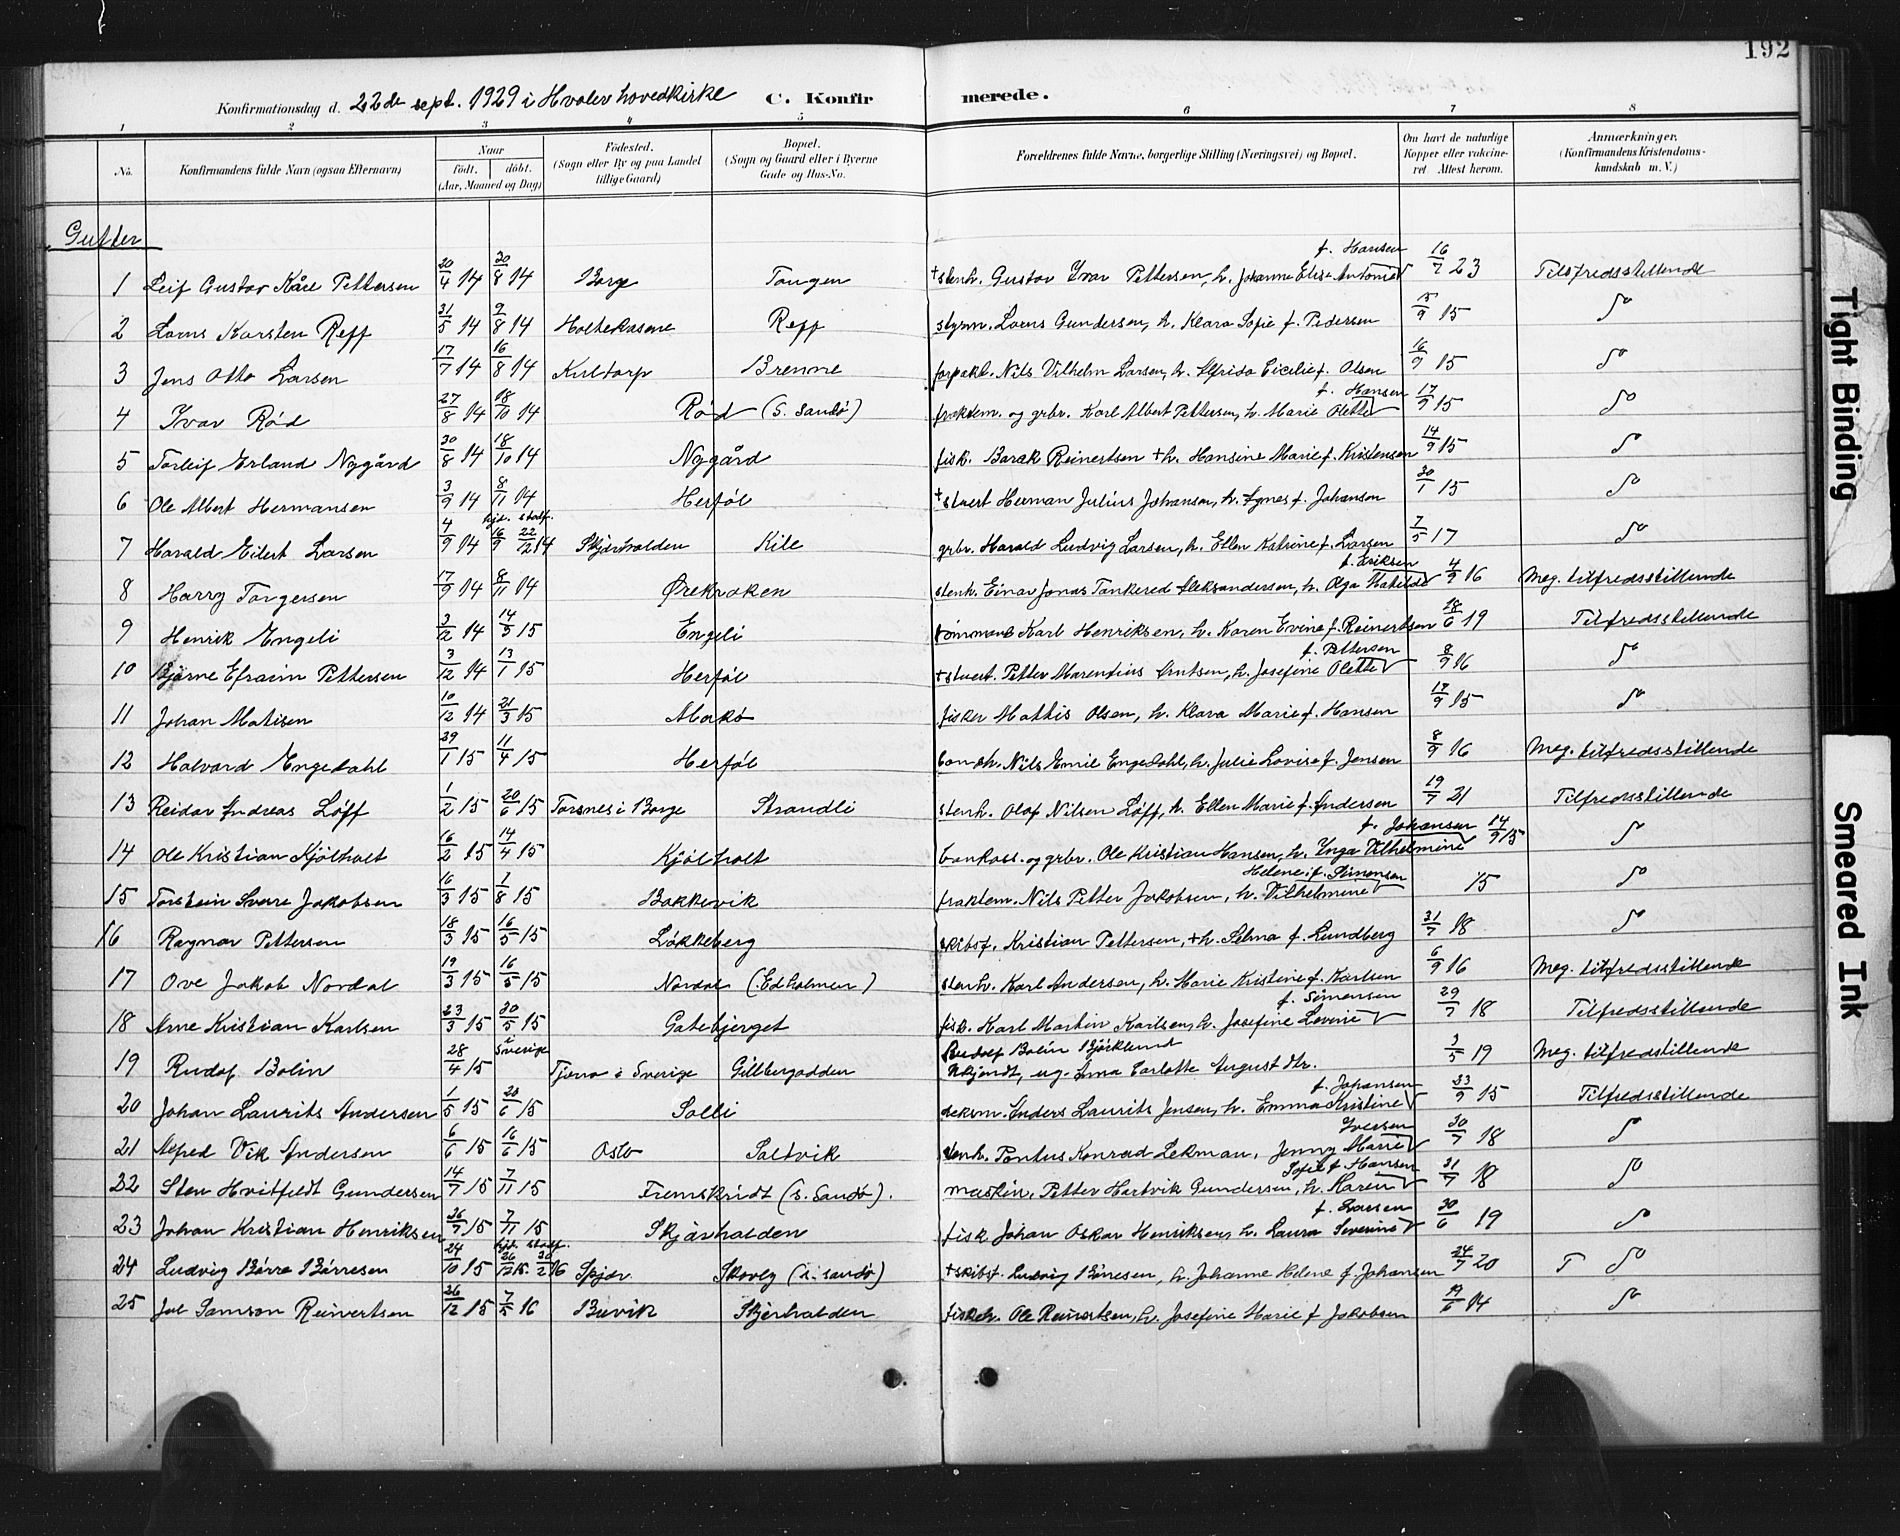 192
Konfirmationsdag d. 22de sept. 1929 i Hvaler hovedkirke C. Konfirmerede.
1 2 3 4 5 6 7 8
No. Konfirmandens fulde Navn (ogsaa Efternavn) Naar födt. döbt. (Aar, Maaned og Dag) Födested. (Sogn eller By og paa Landet tillige Gaard) Bopæl. (Sogn og Gaard eller i Byerne Gade og Hus-No. Forældrenes fulde Navne, borgerlige Stilling (Næringsvei) og Bopæl. Om havt de naturlige Kopper eller vakcineret Attest herom. Anmærkninger. (Konfirmandens Kristendomskundskab m. V.)
Gutter
f. Hansen
1 Leif Gustav Kåre Pettersen 20/4 14 30/8 14 Borge Tangen + stenh. Gustav Ivar Pettersen, h. Johanne Elise Antonie 16/7 23 Tilfredsstillende
2 Laurs Karsten Reff 31/5 14 9/8 14 Holtekasene Reff styrm. Laurs Gundersen, h. Klara Sofie f. Pedersen 15/9 15 do
3 Jens Otto Larsen 17/7 14 16/8 14 Kildorp Brenne forpakt. Nils Vilhelm Larsen, h. Alfrida Cicilie f. Olsen 16/9 15 do
f. Hansen
4 Ivar Rød 27/8 14 18/10 14 Rød (S. Sandø) fraktem. og grbr. Karl Albert Pettersen, h. Marie Olette 17/9 15 do
5 Torleif Erland Nygård 30/8 14 18/10 14 Nygård fisk. Barak Reinertsen + h. Hansine Marie f. Kristensen 14/9 15 do
6 Ole Albert Hermansen 3/9 14 8/11 14 Herføl + stuert Herman Julius Johansen, h. Agnes f. Johansen 30/1 15 do
hjd. stadf.
7 Harald Eilert Larsen 4/9 14 16/9 22/2 14 Skjærhalden Kile grbr. Harald Ludvig Larsen, h. Ellen Katrine f. Larsen 7/5 17 do
f. Eriksen
8 Harry Torgersen 17/9 14 8/11 14 Ørekroken stenh. Einar Jonas Tankered Aleksandersen, h. Olga Matilde 4/9 16 Meg. tilfredsstillende
9 Henrik Engeli 3/12 14 14/3 15 Engeli tømmerm. Karl Henriksen, h. Karen Evine f. Reinertsen 18/6 19 Tilfredsstillende
f. Pettersen
10 Bjarne Efraim Pettersen 3/12 14 13/1 15 Herføl + stuert. Petter Marentius Arntsen, h. Josefine Olette 8/9 16 do
11 Johan Matisen 10/12 14 21/3 15 Makø fisker Mathis Olsen, h. Klara Marie f. Hansen 18/9 15 do
12 Halvard Engedahl 29/1 15 11/4 15 Herføl Nils Emil Engedahl, h. Julie Lovise f. Jensen 8/9 16 Meg. tilfredsstillende
13 Reidar Andreas Løff 1/2 15 20/6 15 Torsnes i Borge Strandli stenh. Olaf Nilsen Løff, h. Ellen Marie f. Andersen 19/7 21 Tilfredsstillende
f. Johansen
14 Ole Kristian Kjølholt 16/2 15 14/4 15 Kjølholt bankass. og grbr. Ole Kristian Hansen, h. Inga Vilhelmine 14/9 15 do
Helene f. Simensen
15 Torstein Sverre Jakobsen 16/3 15 1/8 15 Bakkevik fraktem. Nils Petter Jakobsen, h. Vilhelmine 15 do
16 Ragnar Pettersen 18/3 15 16/5 15 Løkkeberg skibsf. Kristian Pettersen, + h. Selma f. Lundberg 31/7 18 do
17 Ove Jakob Nordal 19/3 15 16/5 15 Nordal (Edholmen) stenh. Karl Andersen, h. Marie Kristine f. Karlsen 6/9 16 Meg. tilfredsstillende
f. Simensen
18 Arne Kristian Karlsen 23/3 15 30/5 15 Gatebjerget fisk. Karl Martin Karlsen, h. Josefine Lovine 29/7 18 Tilfredsstillende
i Sverige Rudolf Bolin Björklund
19 Rudof Bolin 28/4 15 Tjøno i Sverige Gillbergodden ukjendt, ug. Anna Carlotte August dtr. 3/5 19 Meg. tilfredstillende
f. Johansen
20 Johan Laurits Andersen 1/5 15 20/6 15 Solli deksm. Anders Laurits Jensen, h. Emma Kristine 23/9 15 Tilfredsstillende
Iversen
21 Alfred Vik Andersen 6/6 15 16/6 15 Oslo Saltvik stenh. Pontus Konrad Lekman, Jenny Marie 30/7 18 do
Sofie f. Hansen
22 Sten Hvitfeldt Gundersen 14/7 15 7/11 15 Fremskridt (S. Sandø). maskin. Petter Hartvik Gundersen, h. Karen 31/7 18 do
f. Larsen
23 Johan Kristian Henriksen 26/7 15 7/11 15 Skjærhalden fisk. Johan Oskar Henriksen, h. Laura Severine 30/6 19 do
hjd. stadf.
24 Ludvig Børre Børresen 24/10 15 26/12 15 20/2 16 Spjær Skovly (S. Sandø) + skibsf. Ludvig Børresen, h. Johanne Helene f. Johansen 24/7 20 T do
25 Jul Samson Reinertsen 26/12 15 7/5 16 Buvik Skjærhalden fiskeh. Ole Reinertsen, h. Josefine Marie f. Jakobsen 19/6 14 do
Tight Binding
Smeared Ink